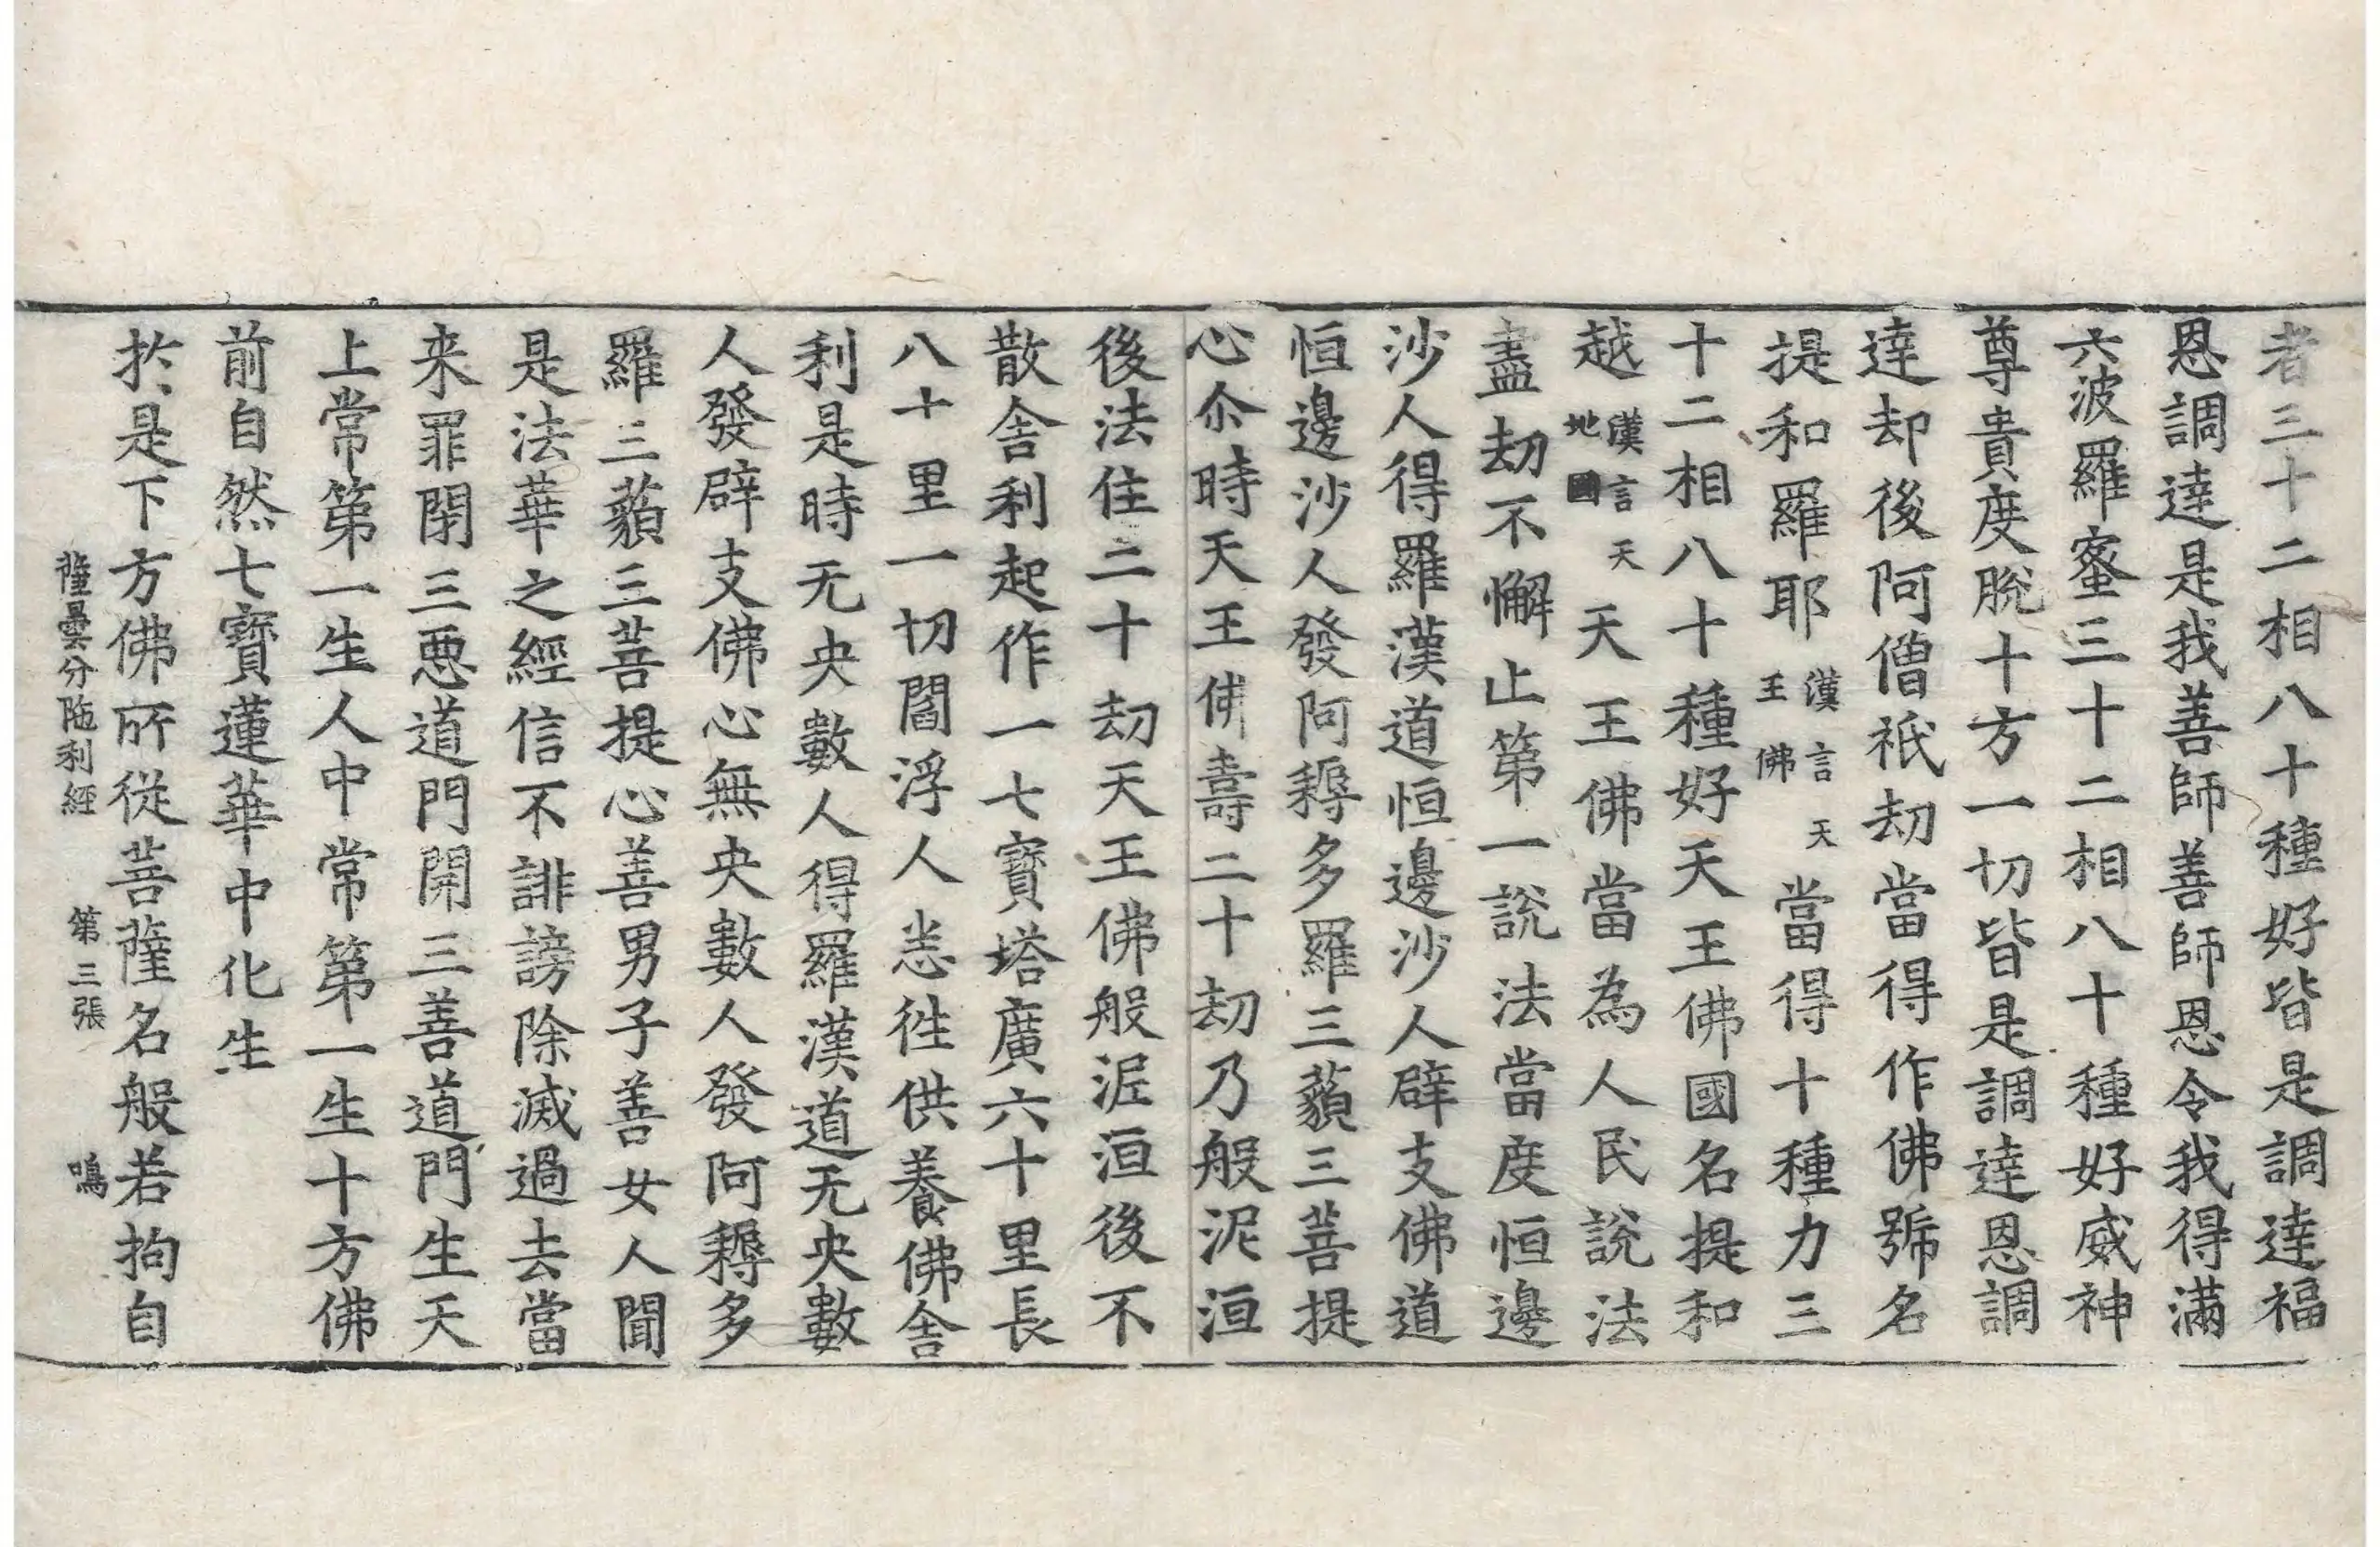 者三十二相八十種好皆是調達福
恩調達是我善師善師恩令我得滿
六波羅蜜三十二相八十種好威神
尊貴度脫十方一切皆是調達恩調
達却後阿僧祇劫當得作佛號名
提和羅耶漢言天王佛當得十種力三
十二相八十種好天王佛國名提和
越漢言天地國天王佛當為人民說法
盡劫不懈止第一說法當度恒邊
沙人得羅漢道恒邊沙人辟支佛道
恒邊沙人發阿耨多羅三藐三菩提
心尒時天王佛壽二十劫乃般泥洹
後法住二十劫天王佛般泥洹後不
散舍利起作一七寶塔廣六十里長
八十里一切閻浮人悉往供養佛舍
利是時无央數人得羅漢道无央數
人發辟支佛心無央數人發阿耨多
羅三藐三菩提心善男子善女人聞
是法華之經信不誹謗除滅過去當
来罪閉三惡道門開三善道門生天
上常第一生人中常第一生十方佛
前自然七寶蓮華中化生
扵是下方佛所從菩薩名般若拘自
薩曇分陁利經　第三張　鳴